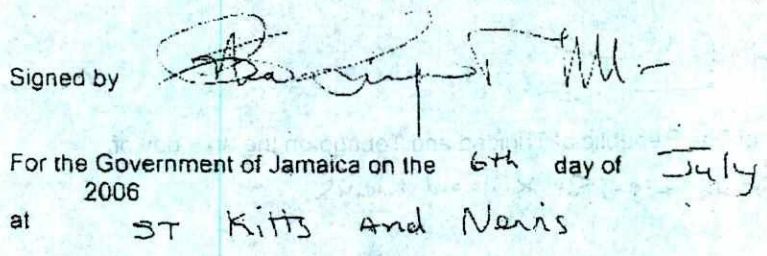 Signed by
For the Government of Jamaica on the 6th day of July
2006
at ST Kitts And Nevis